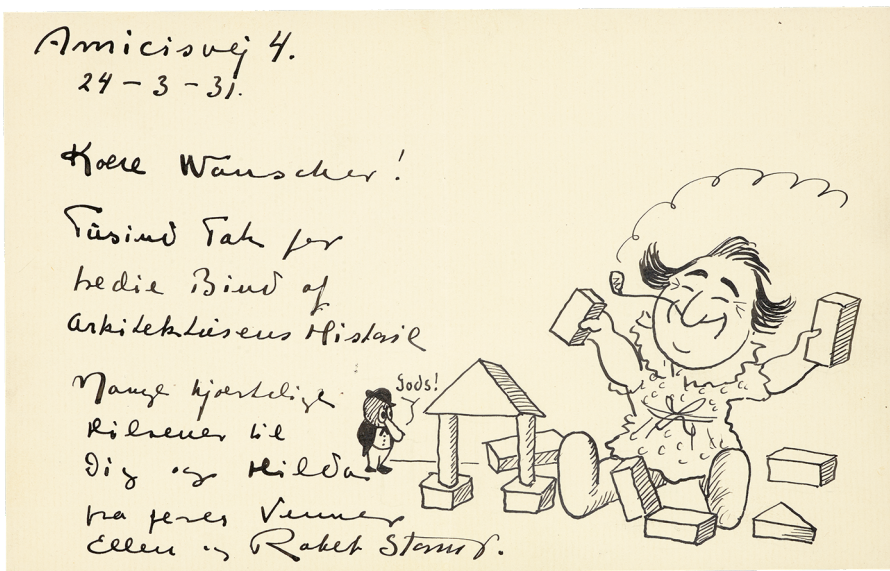 Amicisvej 4.
24-3-31.
Kære Wanscher!
Tusind Tak for
tredie Bind af
Arkitekturens Historie
Mange hjertelige
Hilsener til
Dig og Hilda
fra jeres Venner
Ellen og Robert Storm P.
Gods!